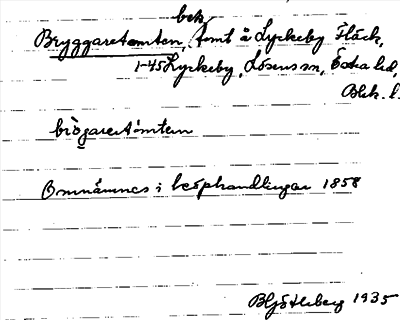 bek
Bryggaretomten, tomt å Lyckeby Fläck,
1-45 Lyckeby, Lösens sn, Östra hd,
Blek. l.
brögaretömten
Omnämnes i köphandlingar 1858
B Hjötleberg 1935